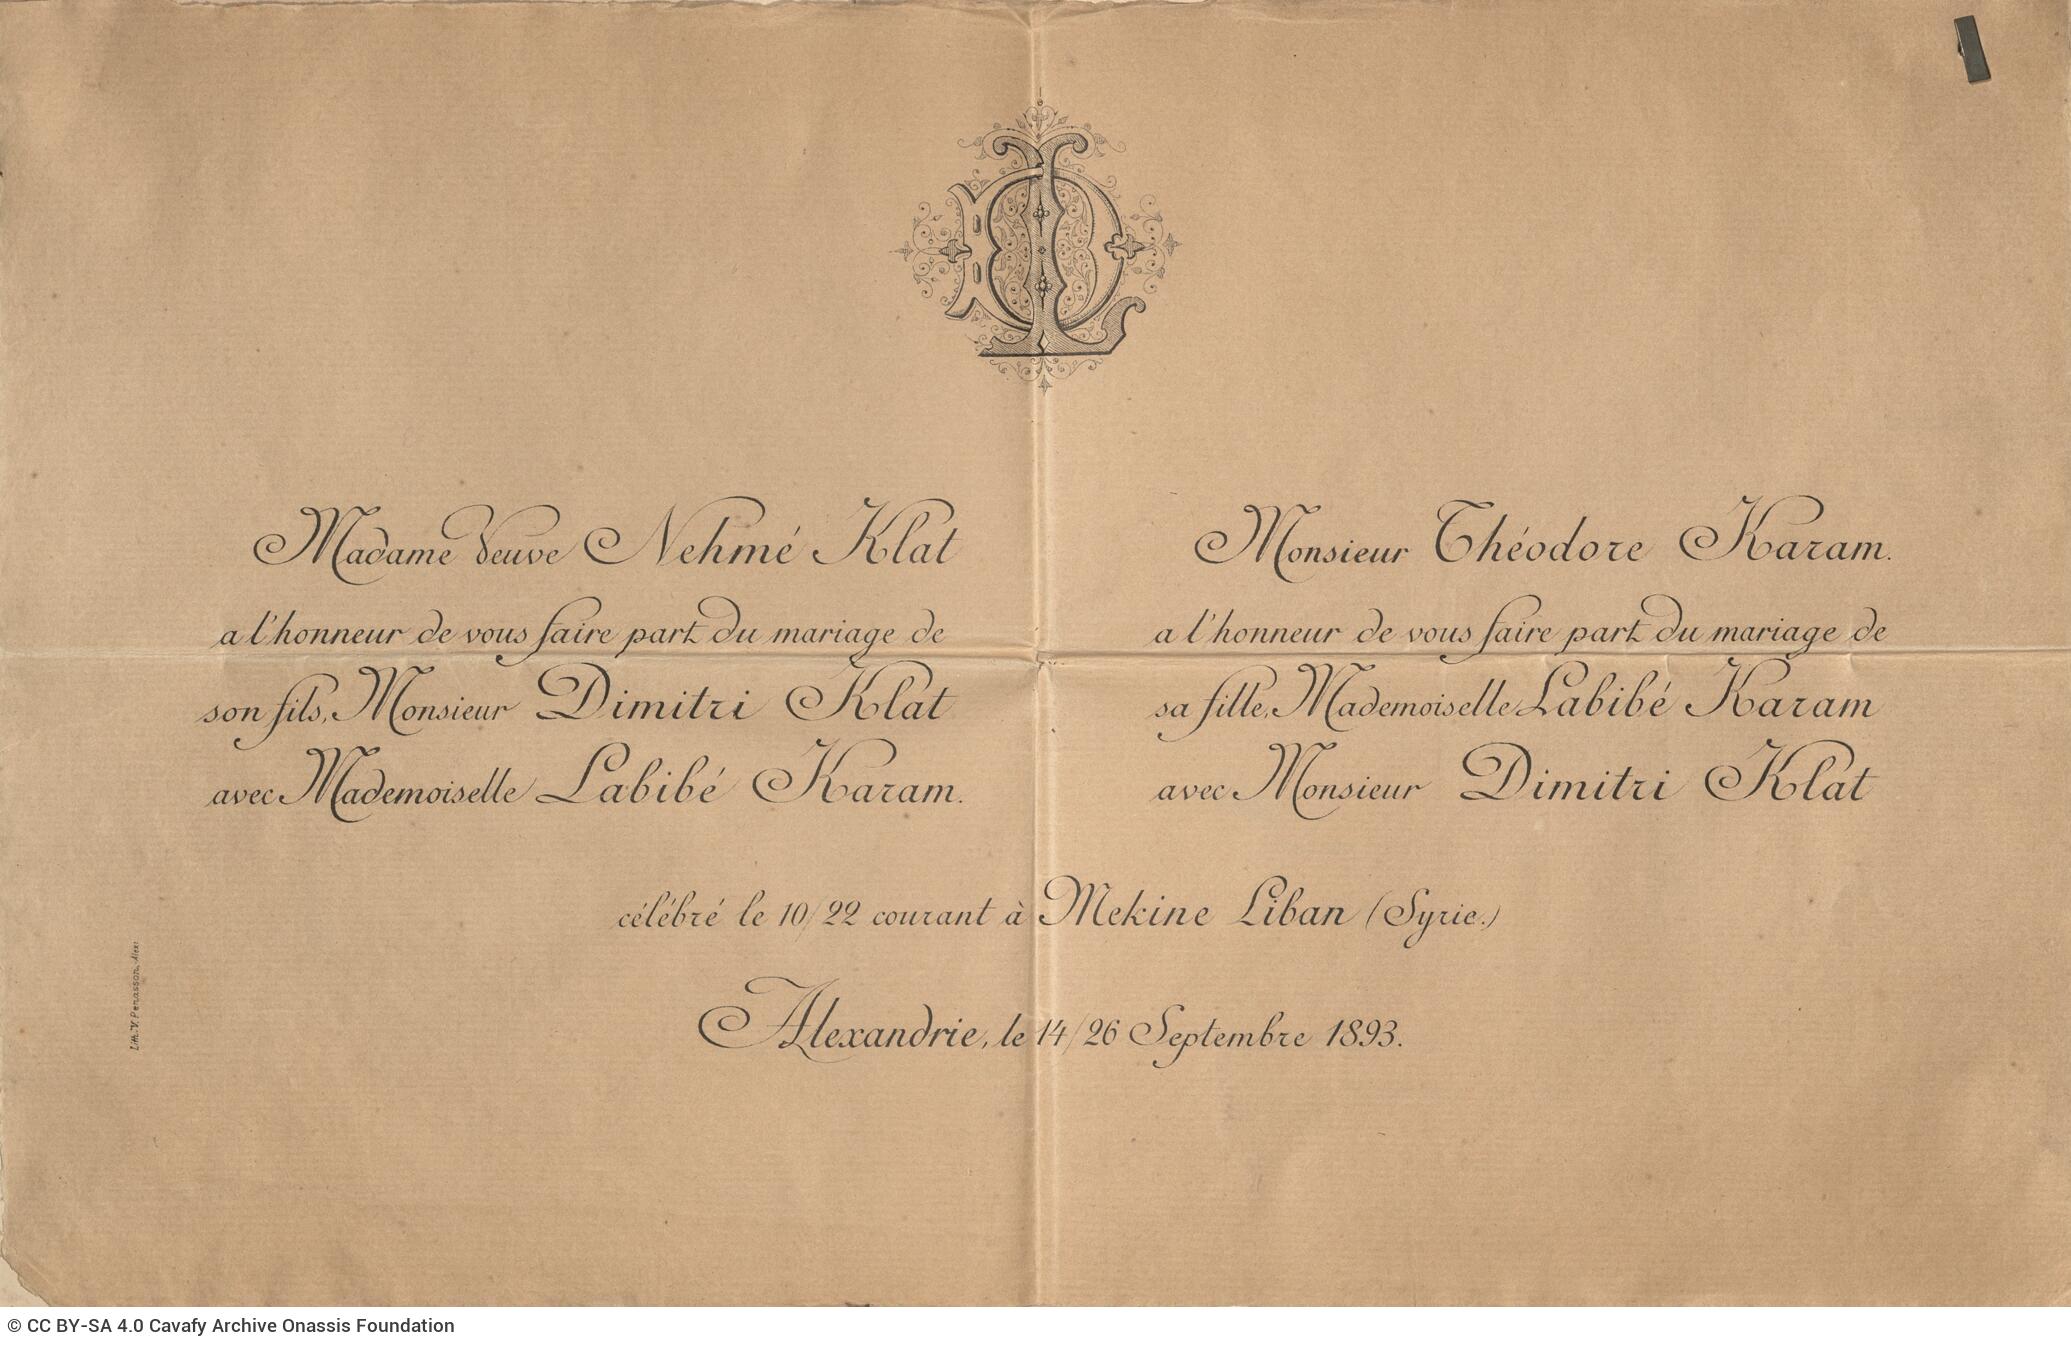 DL
Madame Veuve Nehmé Klat
a l'honneur de vous faire part du mariage de
son fils, Monsieur Dimitri Klat
avec Mademoiselle Labibé Karam.
Monsieur Théodore Karam.
a l'honneur de vous faire part du mariage de
sa fille, Mademoiselle Labibé Karam
avec Monsieur Dimitri Klat
célébré le 10/22 courant à Mekine Liban (Syrie.)
Alexandrie, le 14/26 Septembre 1893.
Lith. V. Penasson, Alex.
© CC BY-SA 4.0 Cavafy Archive Onassis Foundation